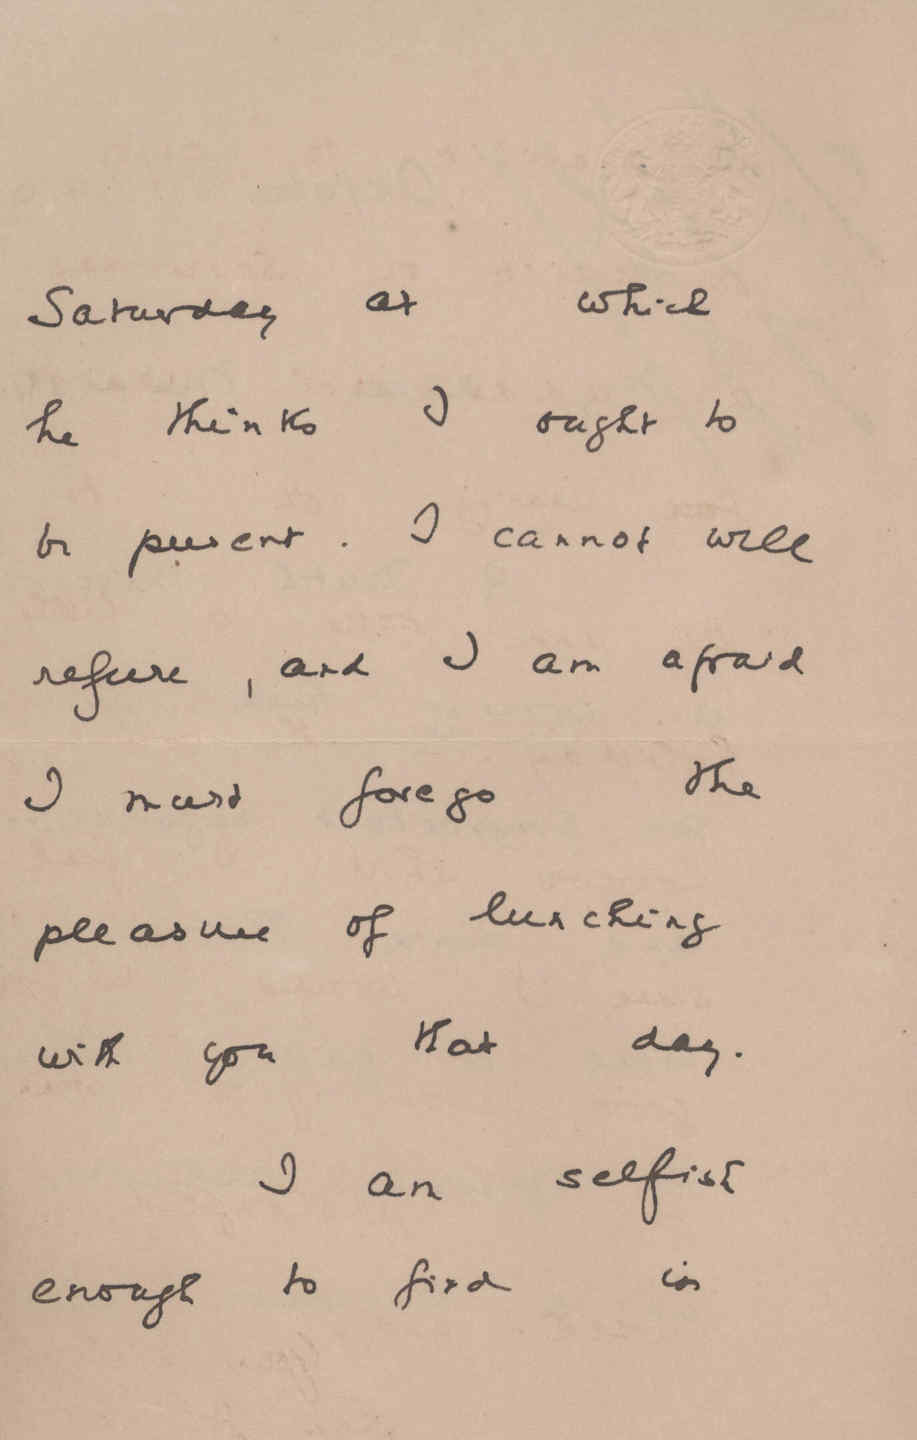 Saturday at which
he thinks I ought to
be present. I cannot well
refuse, and I am afraid
I must forego the
pleasure of lunching
with you that day.
I am selfish
enough to find in